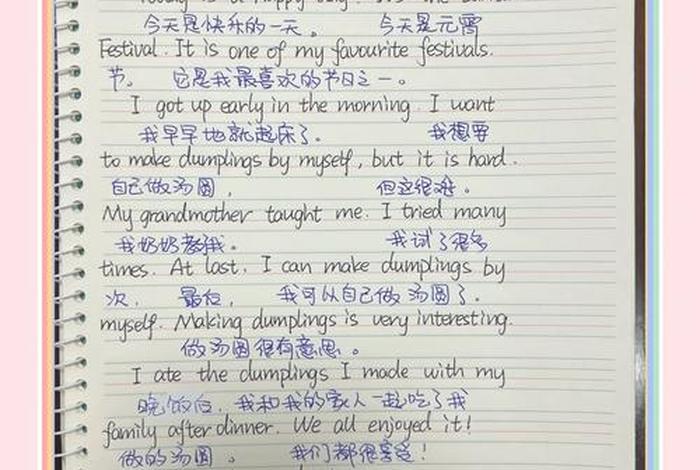 今天是快乐的一天。 今天是元宵
Festival. It is one of my favourite festivals.
节。 它是我最喜欢的节日之一。
I got up early in the morning. I want
我早早地就起床了. 我想要
to make dumplings by myself, but it is hard.
自己做汤圆, 但这很难。
My grandmother taught me. I tried many
我奶奶教我。 我试了很多
times. At last, I can make dumplings by
次. 最后, 我可以自己做汤圆了.
myself. Making dumplings is very interesting.
做汤圆很有意思。
I ate the dumplings I made with my
晚饭后,我和我的家人一起吃了我
family after dinner. We all enjoyed it!
做的汤圆。 我们都很享受!